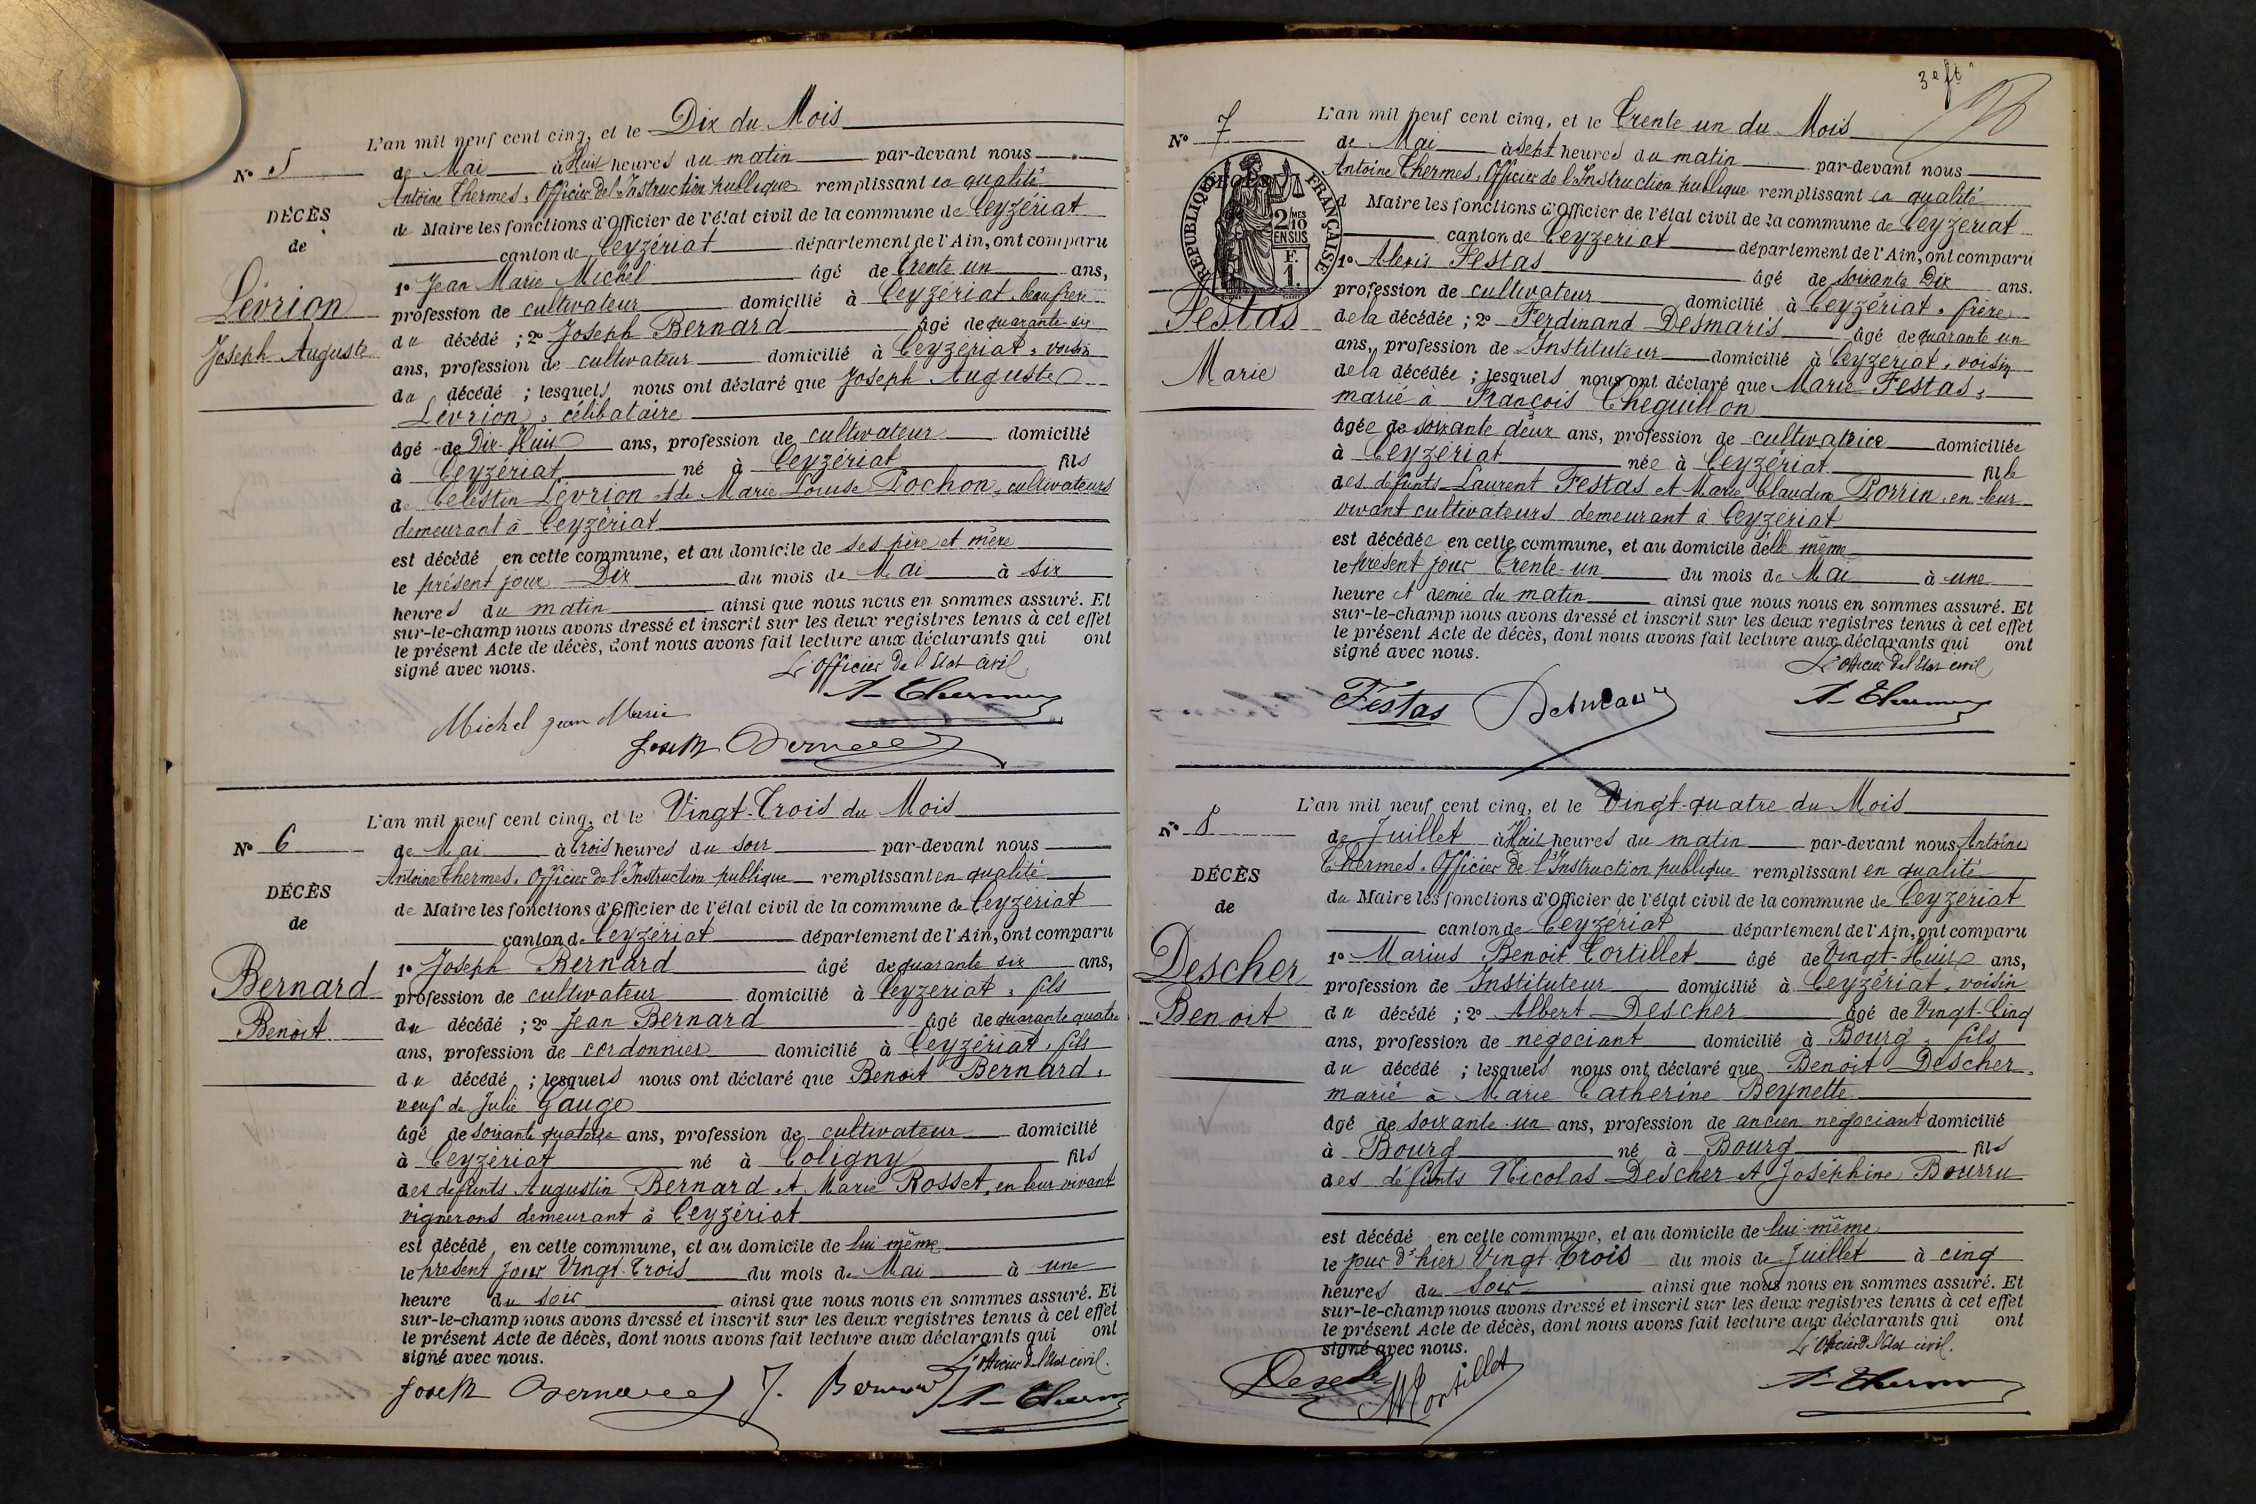 L'an mil neuf cent cinq, et le Dix du Mois
N° 5
de Mai à Huit heures du matin par-devant nous
Antoine Thermes, Officier de l'Instruction publique remplissant en qualité
DÉCÈS
de Maire les fonctions d'Officier de l'état civil de la commune de Ceyzériat
de
canton de Ceyzériat département de l'Ain, ont comparu
1° Jean Marie Michel âgé de Trente un ans,
Lévrion
profession de cultivateur domicilié à Ceyzériat, beau frère
Joseph Auguste
du décédé ; 2° Joseph Bernard âgé de quarante six
ans, profession de cultivateur domicilié à Ceyzériat, voisin
du décédé ; lesquels nous ont déclaré que Joseph Auguste
Lévrion, célibataire
âgé de Dix-Huit ans, profession de cultivateur domicilié
à Ceyzériat né à Ceyzériat fils
de Célestin Lévrion et de Marie Louise Pochon, cultivateurs
demeurant à Ceyzériat
est décédé en cette commune, et au domicile de ses père et mère
le présent jour Dix du mois de Mai à six
heures du matin ainsi que nous nous en sommes assuré. Et
sur-le-champ nous avons dressé et inscrit sur les deux registres tenus à cet effet
le présent Acte de décès, dont nous avons fait lecture aux déclarants qui ont
signé avec nous.
L'officier de l'Etat civil
A. Thermes
Michel jean Marie
Joseph Bernard
L'an mil neuf cent cinq, et le Vingt-Trois du Mois
N° 6
de Mai à Trois heures du soir par-devant nous
Antoine Thermes, Officier de l'Instruction publique remplissant en qualité
DÉCÈS
de Maire les fonctions d'Officier de l'état civil de la commune de Ceyzériat
de
canton de Ceyzériat département de l'Ain, ont comparu
1° Joseph Bernard âgé de quarante six ans,
Bernard
profession de cultivateur domicilié à Ceyzériat, fils
Benoit
du décédé ; 2° Jean Bernard âgé de quarante quatre
ans, profession de cordonnier domicilié à Ceyzériat, fils
du décédé ; lesquels nous ont déclaré que Benoit Bernard,
veuf de Julie Gauge
âgé de soixante quatorze ans, profession de cultivateur domicilié
à Ceyzériat né à Coligny fils
des défunts Augustin Bernard et Marie Rosset, en leur vivant
vignerons demeurant à Ceyzériat
est décédé en cette commune, et au domicile de lui même
le présent jour Vingt-Trois du mois de Mai à une
heure du soir ainsi que nous nous en sommes assuré. Et
sur-le-champ nous avons dressé et inscrit sur les deux registres tenus à cet effet
le présent Acte de décès, dont nous avons fait lecture aux déclarants qui ont
signé avec nous.
L'officier de l'Etat civil.
Joseph Bernard J. Bernard A. Thermes
3e ft
L'an mil neuf cent cinq, et le Trente un du Mois
N° 7
de Mai à sept heures du matin par-devant nous
Antoine Thermes, Officier de l'Instruction publique remplissant en qualité
DÉCÈS
RÉPUBLIQUE FRANÇAISE
2/10MES
EN SUS
F.
1.
d Maire les fonctions d'Officier de l'état civil de la commune de Ceyzériat
canton de Ceyzériat département de l'Ain, ont comparu
1° Alexis Festas âgé de soixante Dix ans.
profession de cultivateur domicilié à Ceyzériat, frère
Festas
de la décédée ; 2° Ferdinand Desmaris âgé de quarante un
ans, profession de Instituteur domicilié à Ceyzériat, voisin
Marie
de la décédée ; lesquels nous ont déclaré que Marie Festas,
marié à François Cheguillon
âgée de soixante deux ans, profession de cultivatrice domiciliée
à Ceyzériat née à Ceyzériat fille
des défunts Laurent Festas et Marie Claudine Porrin, en leur
vivant cultivateurs demeurant à Ceyzériat
est décédée en cette commune, et au domicile d'elle même
le présent jour Trente-un du mois de Mai à une
heure et demie du matin ainsi que nous nous en sommes assuré. Et
sur-le-champ nous avons dressé et inscrit sur les deux registres tenus à cet effet
le présent Acte de décès, dont nous avons fait lecture aux déclarants qui ont
signé avec nous.
L'officier de l'Etat civil
Festas A. Thermes
L'an mil neuf cent cinq, et le Vingt-quatre du Mois
N° 8
de Juillet à Huit heures du matin par-devant nous Antoine
Thermes, Officier de l'Instruction publique remplissant en qualité
DÉCÈS
du Maire les fonctions d'Officier de l'état civil de la commune de Ceyzériat
de
canton de Ceyzériat département de l'Ain, ont comparu
1° Marius Benoit Tortillet âgé de Vingt-Huit ans,
Descher
profession de Instituteur domicilié à Ceyzériat, voisin
Benoit
du décédé ; 2° Albert Descher âgé de Vingt-Cinq
ans, profession de négociant domicilié à Bourg, fils
du décédé ; lesquels nous ont déclaré que Benoit Descher,
marié à Marie Catherine Beynette
âgé de soixante-un ans, profession de ancien négociant domicilié
à Bourg né à Bourg fils
des défunts Nicolas Descher et Joséphine Bourru
est décédé en cette commune, et au domicile de lui-même
le jour d'hier Vingt-Trois du mois de Juillet à cinq
heures du soir ainsi que nous nous en sommes assuré. Et
sur-le-champ nous avons dressé et inscrit sur les deux registres tenus à cet effet
le présent Acte de décès, dont nous avons fait lecture aux déclarants qui ont
signé avec nous.
L'officier de l'Etat civil.
Descher MTortillet A. Thermes